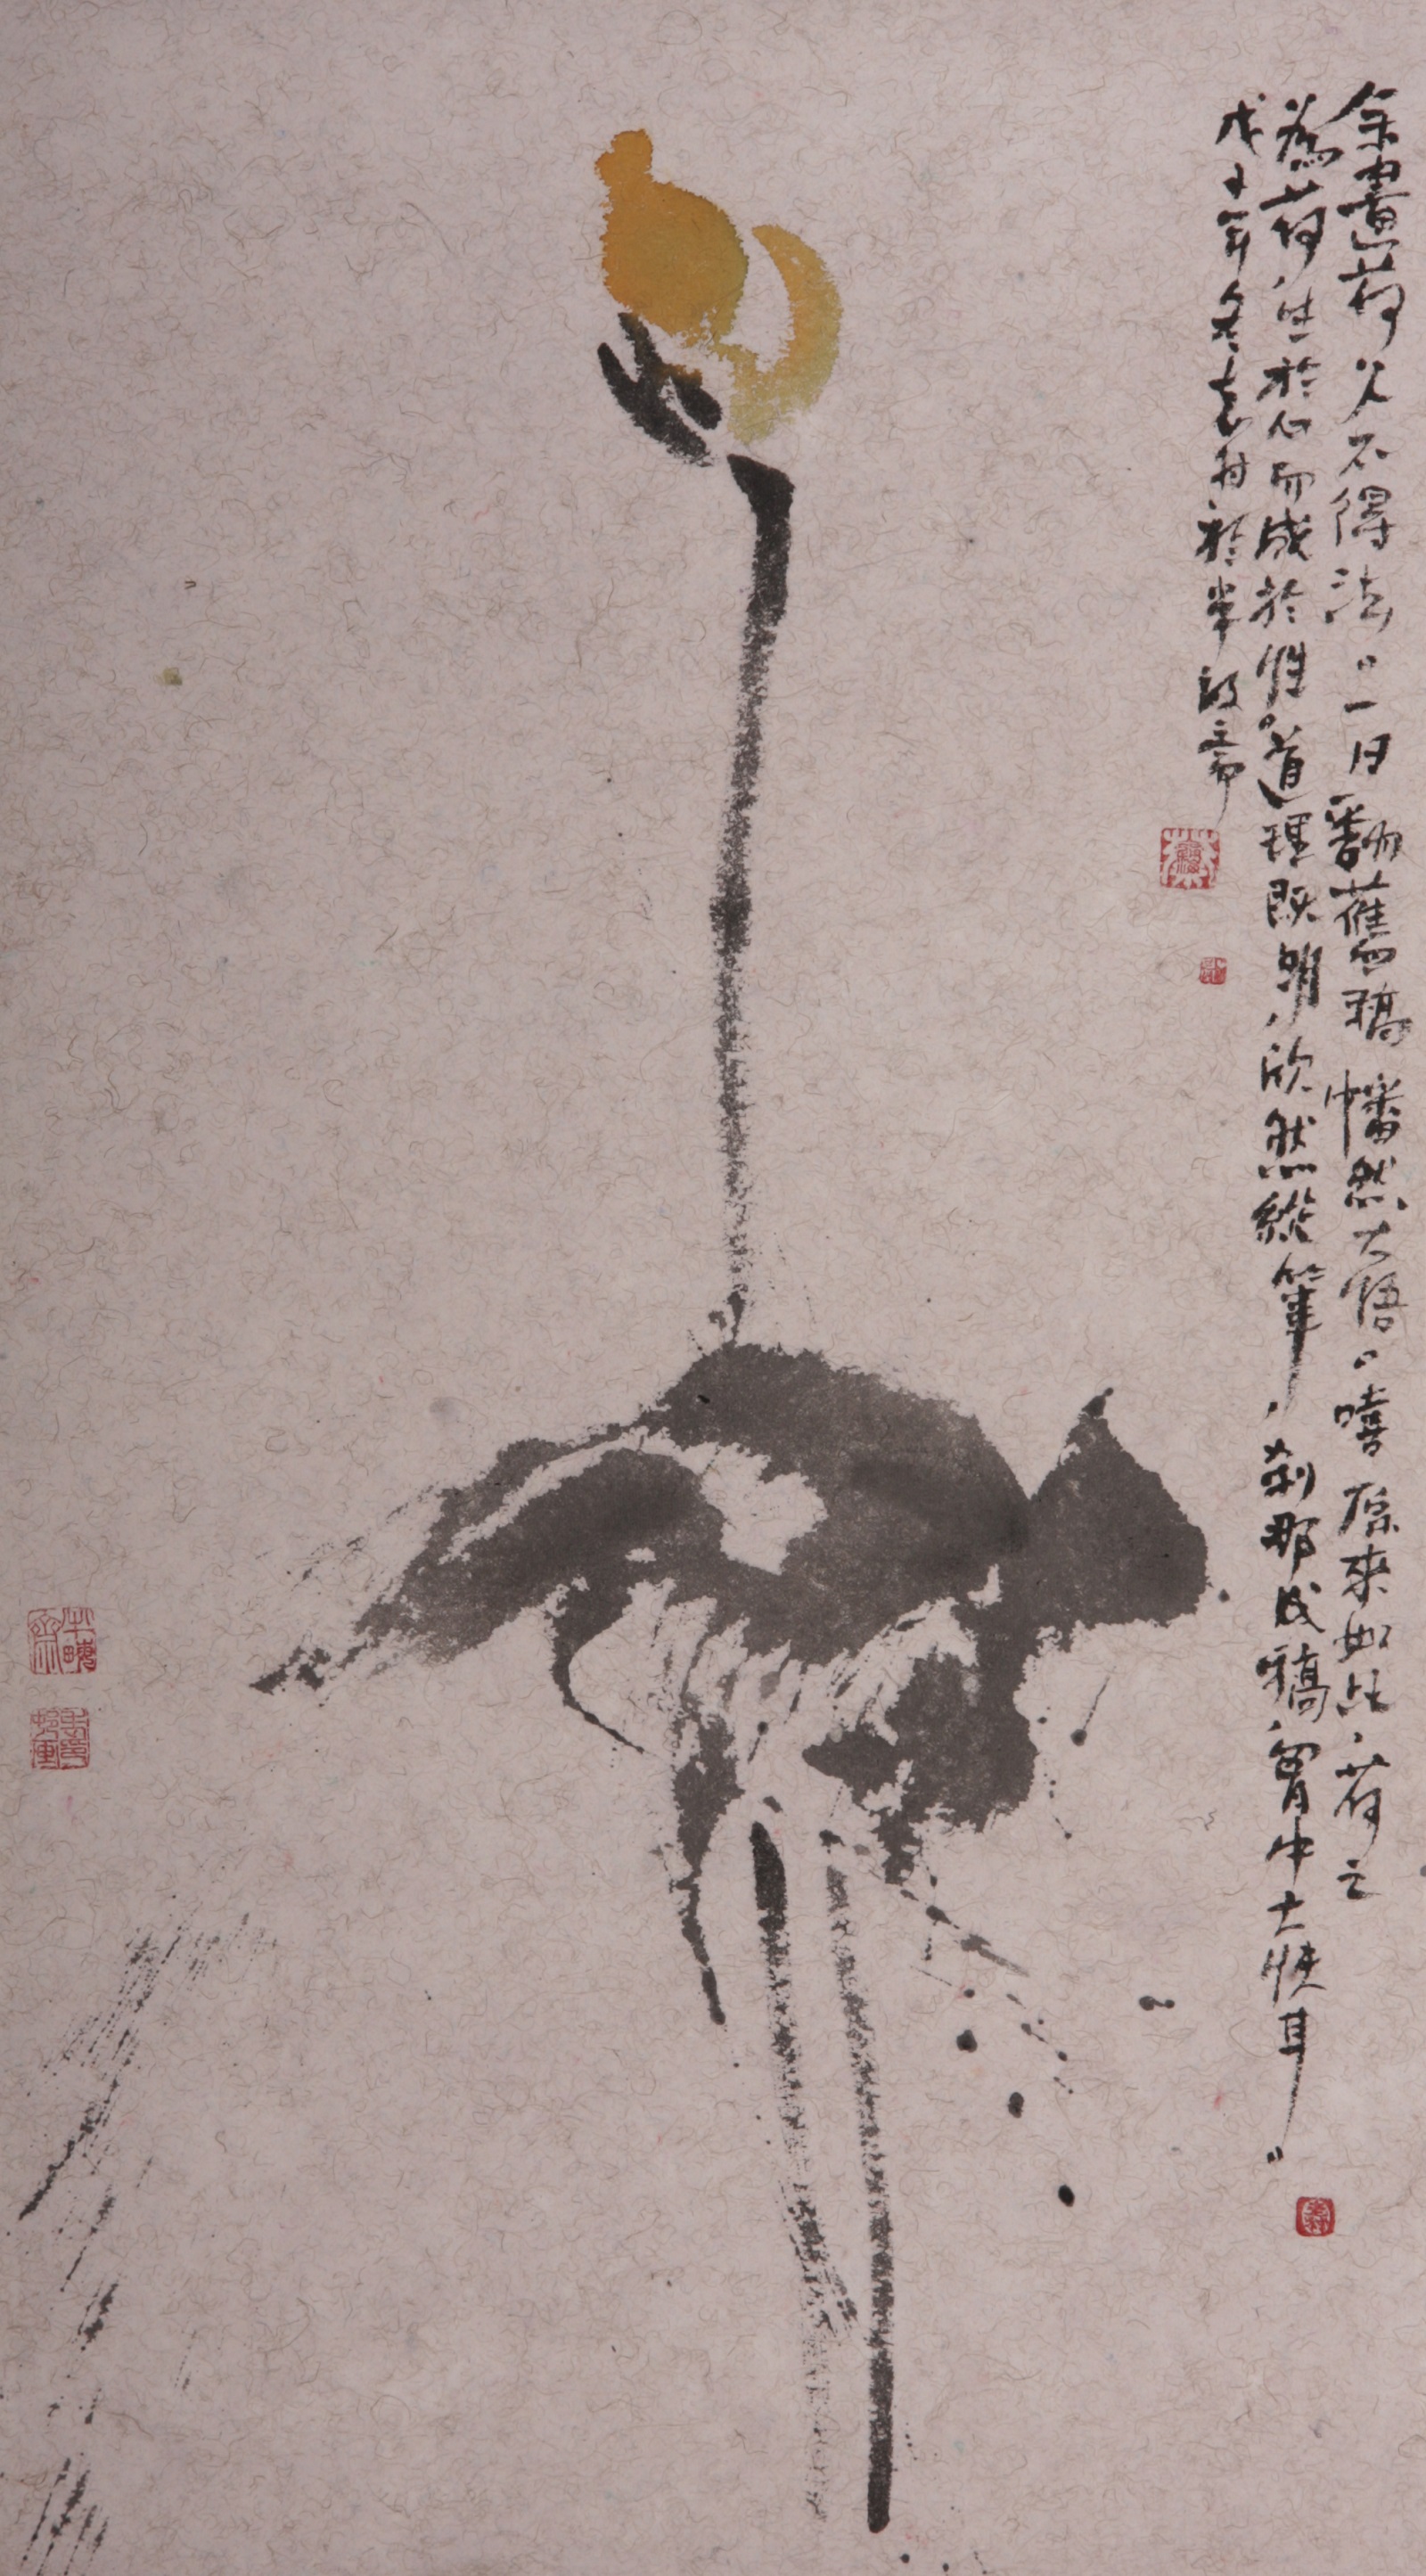 余畫荷久不得法。一日翻舊稿幡然大悟。嘻原來如此，荷之
為荷，生於心而成於性。道理既明，欣然縱筆，刹那成稿，胸中大快耳。
戊子年冬袁村於半畝斋